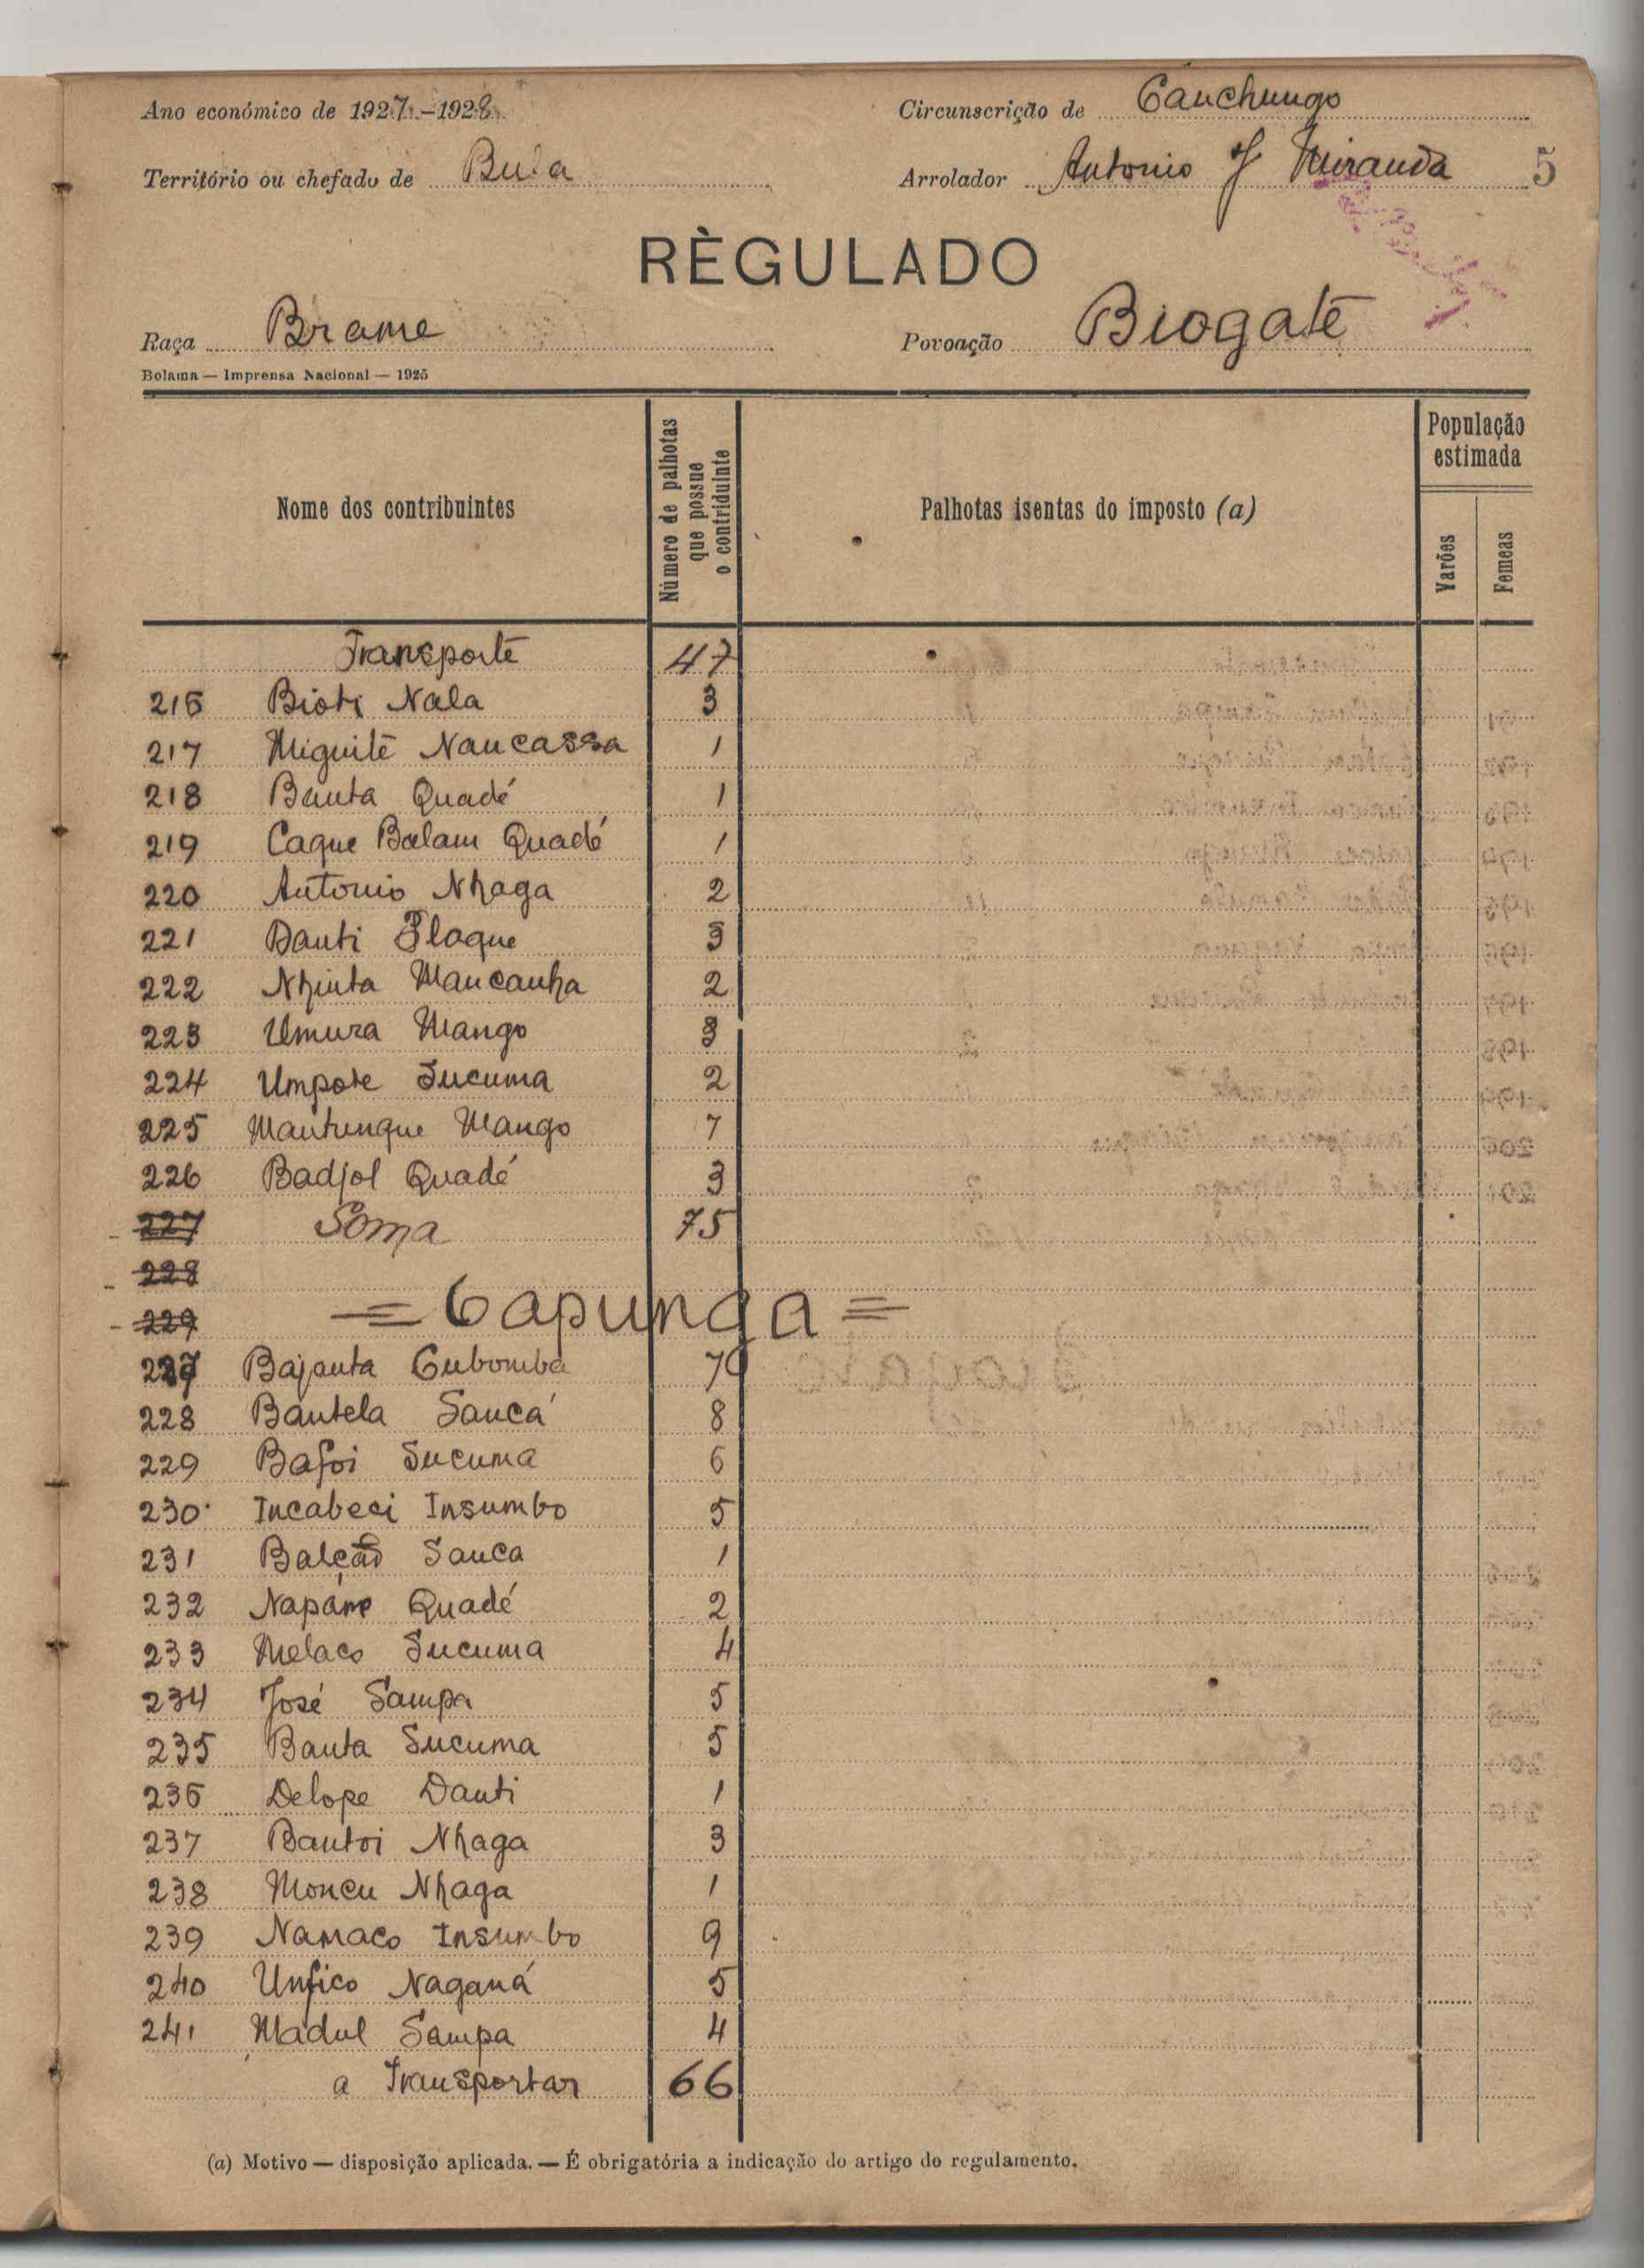 Ano económico de 1927-1928
Circunscrição de Canchungo
Território ou chefado de Bula
Arrolador Antonio J Miranda 5
RÈGULADO
Raça Brame
Povoação Biogate
Bolama — Imprensa Nacional — 1925
Nome dos contribuintes
Número de palhotas que possue o contriduinte
Palhotas isentas do imposto (a)
População estimada
Varões
Femeas
Transporte 47
216 Bioti Nala 3
217 Miguite Naucassa 1
218 Bauta Quadé 1
219 Caque Balam Quadé 1
220 Antonio Nhaga 2
221 Dauti Plaque 3
222 Nhinta Mancanha 2
223 Umura Mango 3
224 Umpote Sucuma 2
225 Mautunque Mango 7
226 Badjol Quadé 3
227 Soma 75
228
229 = Capunga =
227 Bajanta Cubomba 7
228 Bautela Sancá 8
229 Bafoi Sucuma 6
230 Incabeci Insumbo 5
231 Balcão Sanca 1
232 Napame Quadé 2
233 Melaco Sucuma 4
234 José Sampa 5
235 Bauta Sucuma 5
236 Delope Dauti 1
237 Bautoi Nhaga 3
238 Moncu Nhaga 1
239 Namaco Insumbo 9
240 Unfico Naganá 5
241 Madul Sampa 4
a Transportar 66
(a) Motivo — disposição aplicada. — É obrigatória a indicação do artigo do regulamento.